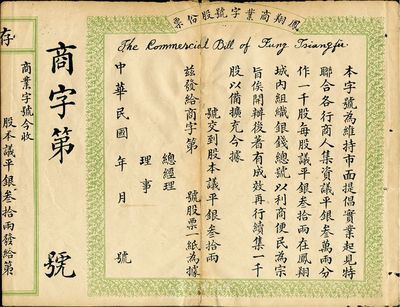 鳳翔商業字號股份票
The Commercial Bill of Fung Tsiangfu
本字號為維持市面提倡實業起見特
聯合各行商人集資議平銀叁萬兩分
作一千股每股議平銀叁拾兩在鳳翔
城內組織銀錢總號以利商便民為宗
旨俟開辦後著有成效再行續集一千
股以備擴充今據
號交到股本議平銀叁拾兩
茲發給商字第 號股票一紙為據
總經理
理事
中華民國 年 月 號
商字第 號
存
商業字號今收
股本議平銀叁拾兩發給第